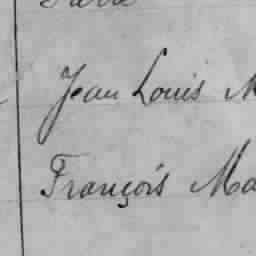 Jean Louis M
François Ma